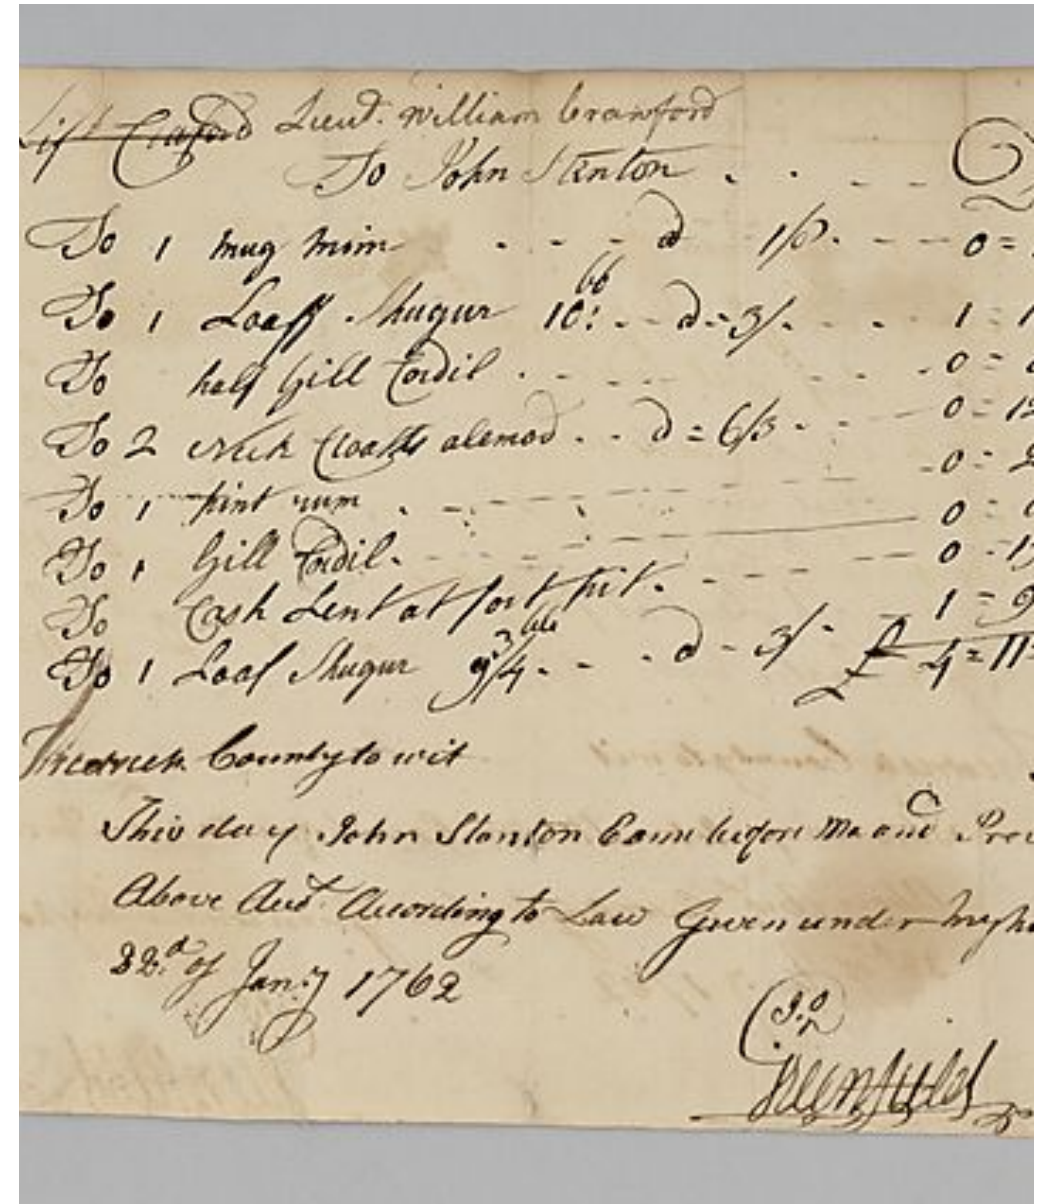 Lieut. William Crawford
To John Stanton - - - - D
To 1 mug mim - - - a 1/6 - - - 0 =
To 1 Loaff Shugur 10: lb - - a - 3/ - - - 1 = 1
To half Gill Cordil - - - - - 0 =
To 2 Neck Cloaths alemod - - a = 6/3 - - 0 = 12
To 1 pint rum - - - - - 0 = 2
To 1 Gill Cordil - - - - 0 =
To Cash Lent at fort pit - - - 0 - 15
To 1 Loaf Shugur 9 3/4 lb - - - a - 3/ - 1 = 9
£ 4 = 11 =
Frederick County to wit
This day John Stanton Came before Me and
Above Acct. According to Law Given under my
22d of Jan:y 1762